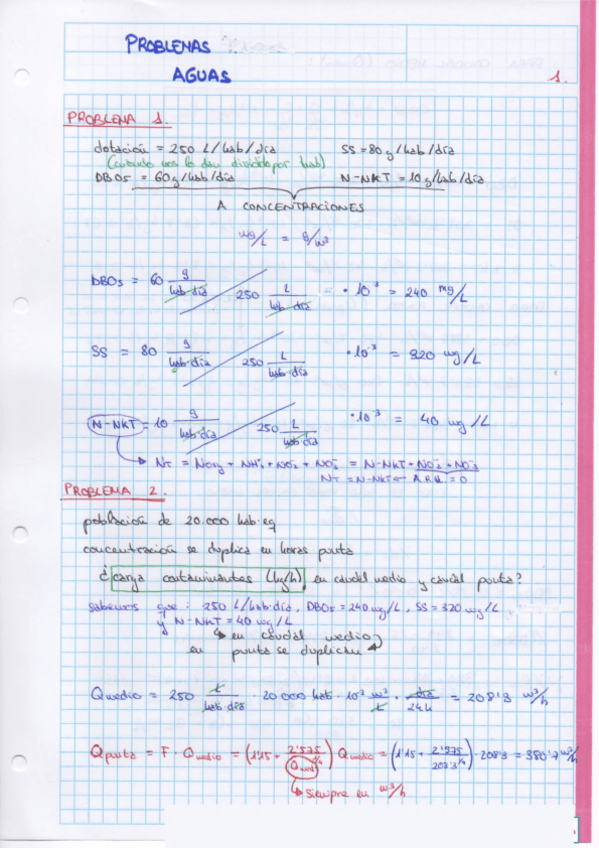 PROBLEMAS
AGUAS
1.
PROBLEMA 1.
dotación = 250 L/hab/día SS = 80 g/hab/día
(cuando nos lo dan dividido por hab)
DBO5 = 60 g/hab/día N-NKT = 10 g/hab/día
A CONCENTRACIONES
mg/L = g/m³
DBO5 = 60 g/hab·día / 250 L/hab·día = · 10⁻³ = 240 mg/L
SS = 80 g/hab·día / 250 L/hab·día · 10⁻³ = 320 mg/L
N-NKT = 10 g/hab·día / 250 L/hab·día · 10⁻³ = 40 mg/L
NT = Norg + NH₄⁺ + NO₂⁻ + NO₃⁻ = N-NKT + NO₂⁻ + NO₃⁻
NT = N-NKT ← A.R.U. = 0
PROBLEMA 2.
población de 20.000 hab-eq
concentración se duplica en horas punta
¿carga contaminantes (kg/h), en caudal medio y caudal punta?
sabemos que: 250 L/hab·día, DBO5 = 240 mg/L, SS = 320 mg/L,
y N-NKT = 40 mg/L
↳ en caudal medio
en punta se duplican
Qmedio = 250 L/hab·día · 20000 hab · 10⁻³ m³/L · día/24h = 208'3 m³/h
Qpunta = F · Qmedio = (1'15 + 2'575/Qmed^1/4) Qmedio = (1'15 + 2'575/208'3^1/4) · 208'3 = 380'7 m³/h
↳ siempre en m³/h